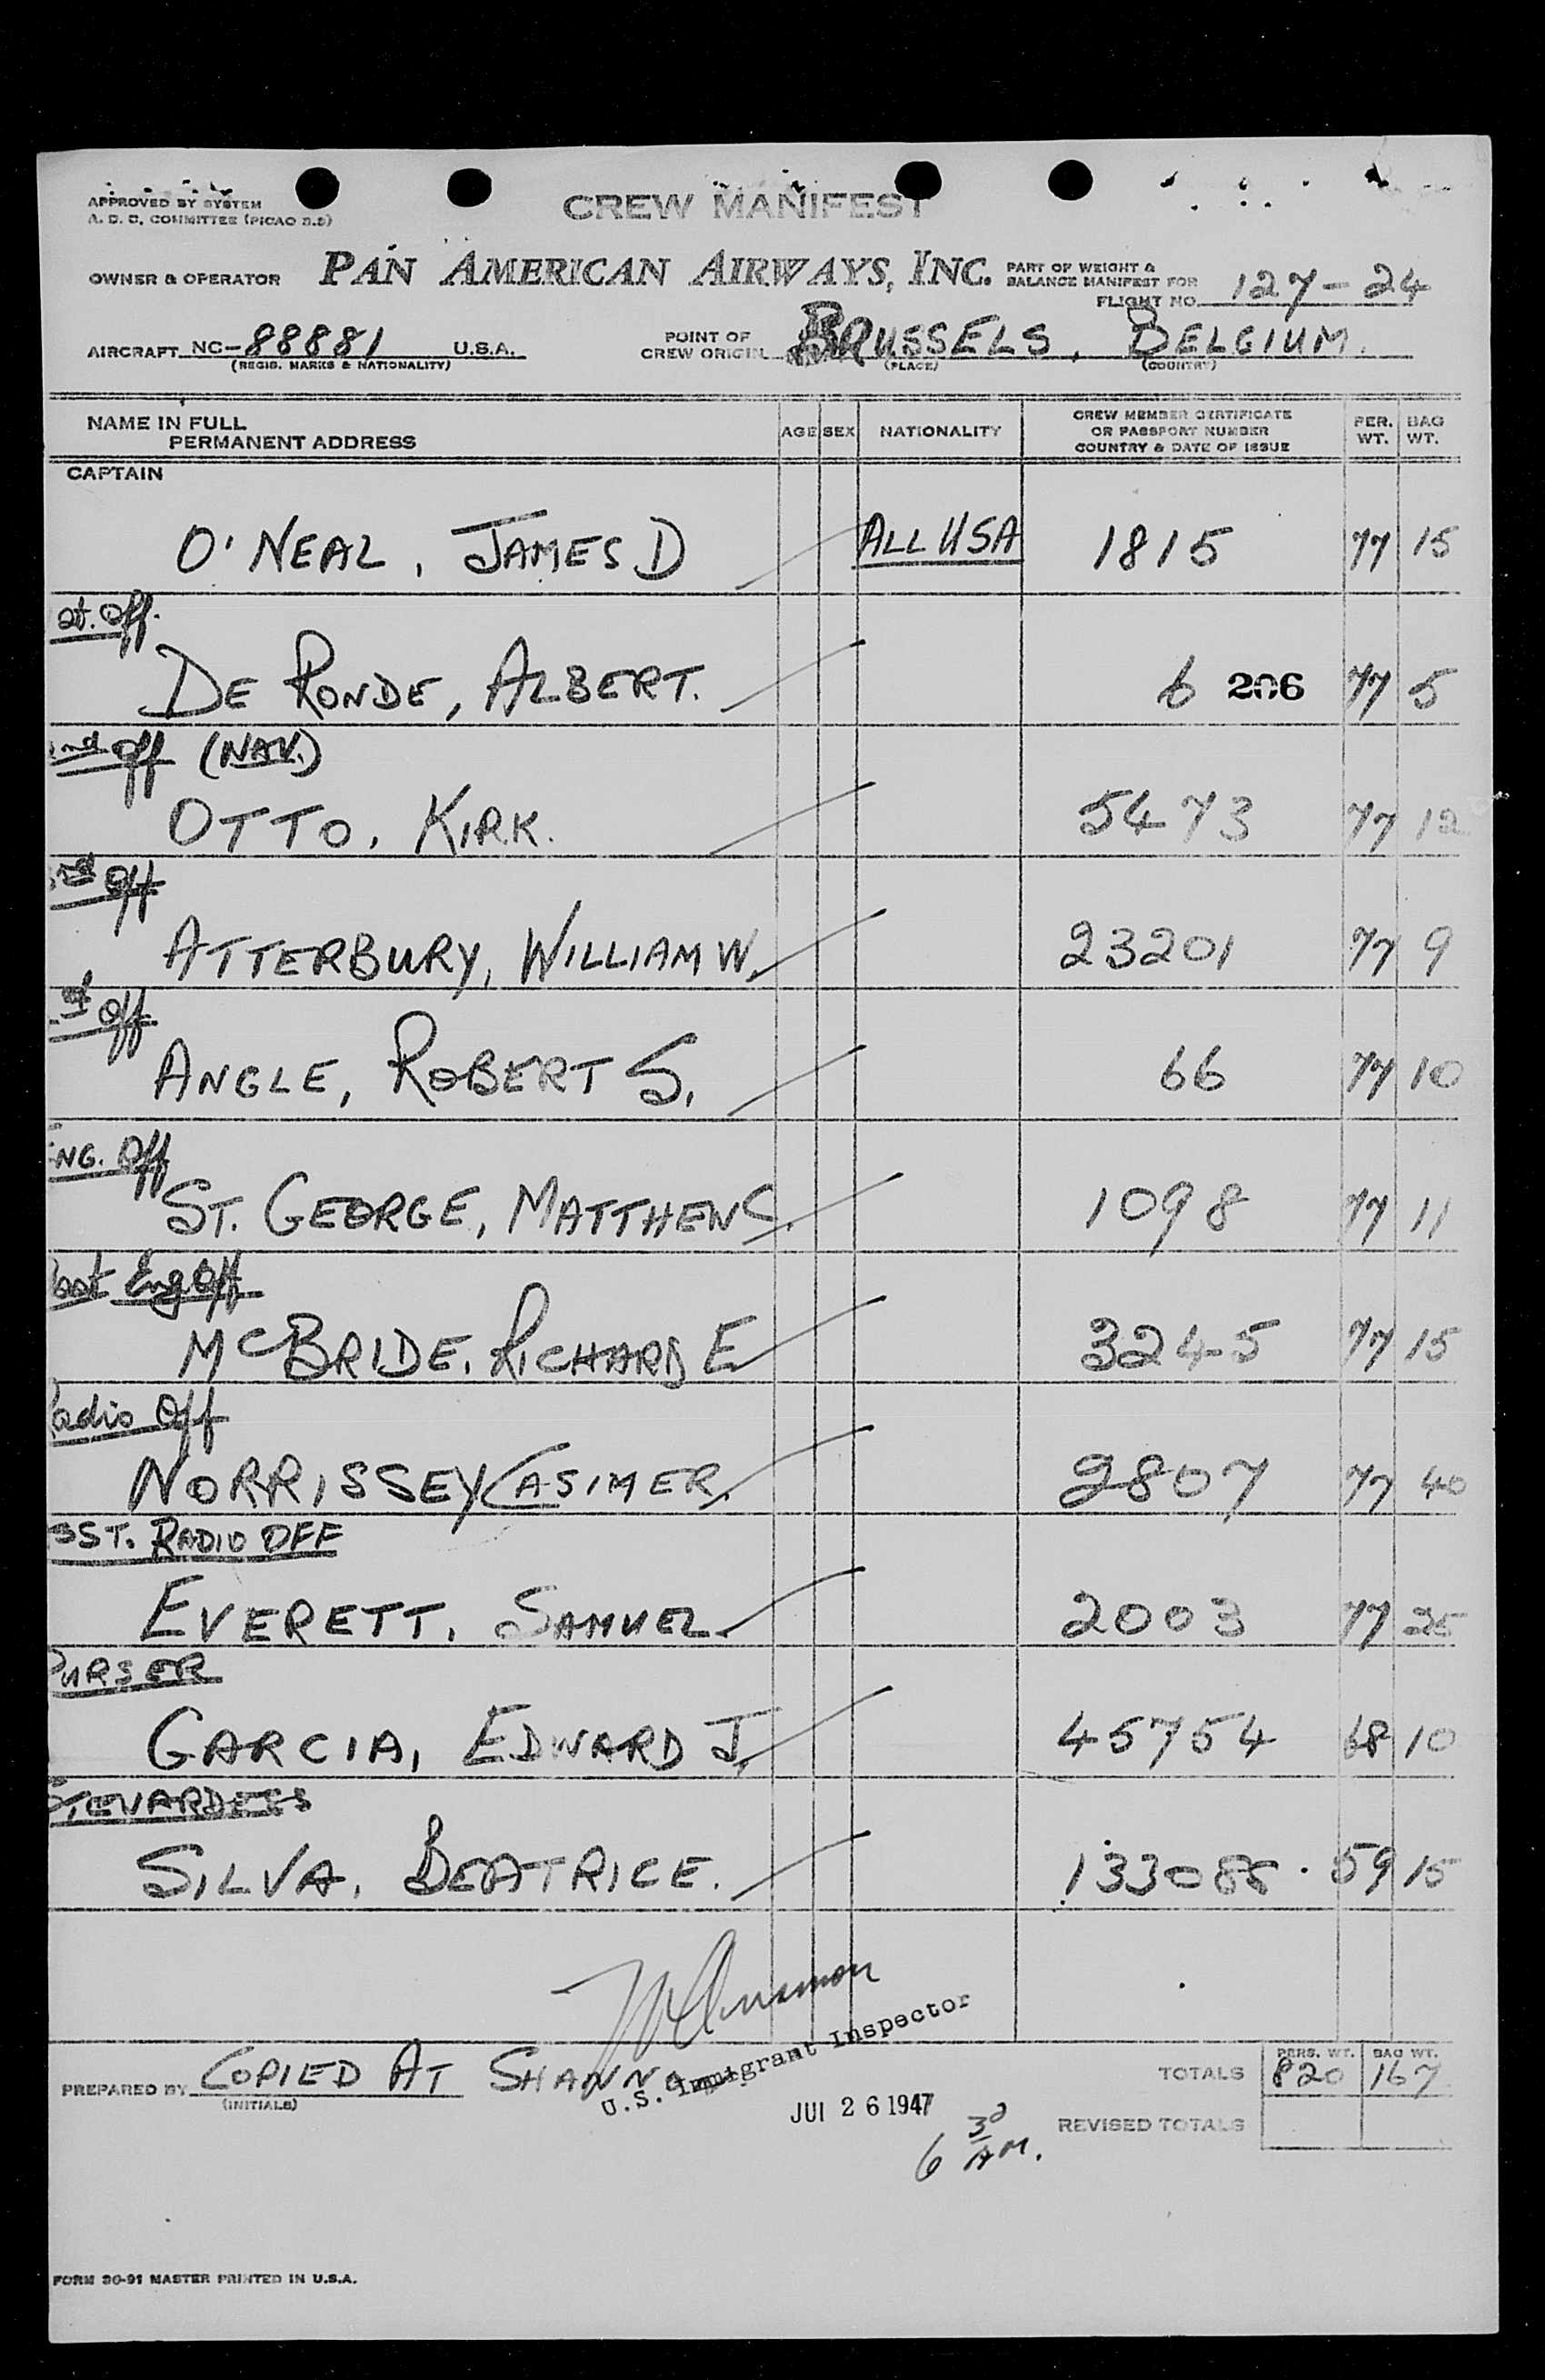 APPROVED BY SYSTEM
A. D. C. COMMITTEE (PICAO 2.2)
CREW MANIFEST
OWNER & OPERATOR PAN AMERICAN AIRWAYS, INC. PART OF WEIGHT & BALANCE MANIFEST FOR FLIGHT NO. 127-24
AIRCRAFT NC-88881 U.S.A. POINT OF CREW ORIGIN BRUSSELS, BELGIUM.
(REGIS. MARKS & NATIONALITY) (PLACE) (COUNTRY)
NAME IN FULL PERMANENT ADDRESS AGE SEX NATIONALITY CREW MEMBER CERTIFICATE OR PASSPORT NUMBER COUNTRY & DATE OF ISSUE PER. WT. BAG WT.
CAPTAIN
O'NEAL, JAMES D ALL USA 1815 77 15
st. Off.
DE RONDE, ALBERT. 6 206 77 5
nd Off (NAV.)
OTTO, KIRK. 5473 77 12
rd Off
ATTERBURY, WILLIAM W. 23201 77 9
st Off
ANGLE, ROBERT S. 66 77 10
ENG. Off
ST. GEORGE, MATTHEW C. 1098 77 11
Asst Eng Off
MCBRIDE, RICHARD E 3245 77 15
Radio Off
NORRISSEY CASIMER. 2807 77 40
SST. RADIO OFF
EVERETT, SAMUEL. 2003 77 25
PURSER
GARCIA, EDWARD J. 45754 68 10
STEWARDESS
SILVA, BEATRICE. 133085. 59 15
U.S. Immigrant Inspector
PREPARED BY COPIED AT SHANNO
(INITIALS)
TOTALS PERS. WT. 820 BAG WT. 167
JUl 26 1947
6 30 AM.
REVISED TOTALS
FORM 30-91 MASTER PRINTED IN U.S.A.